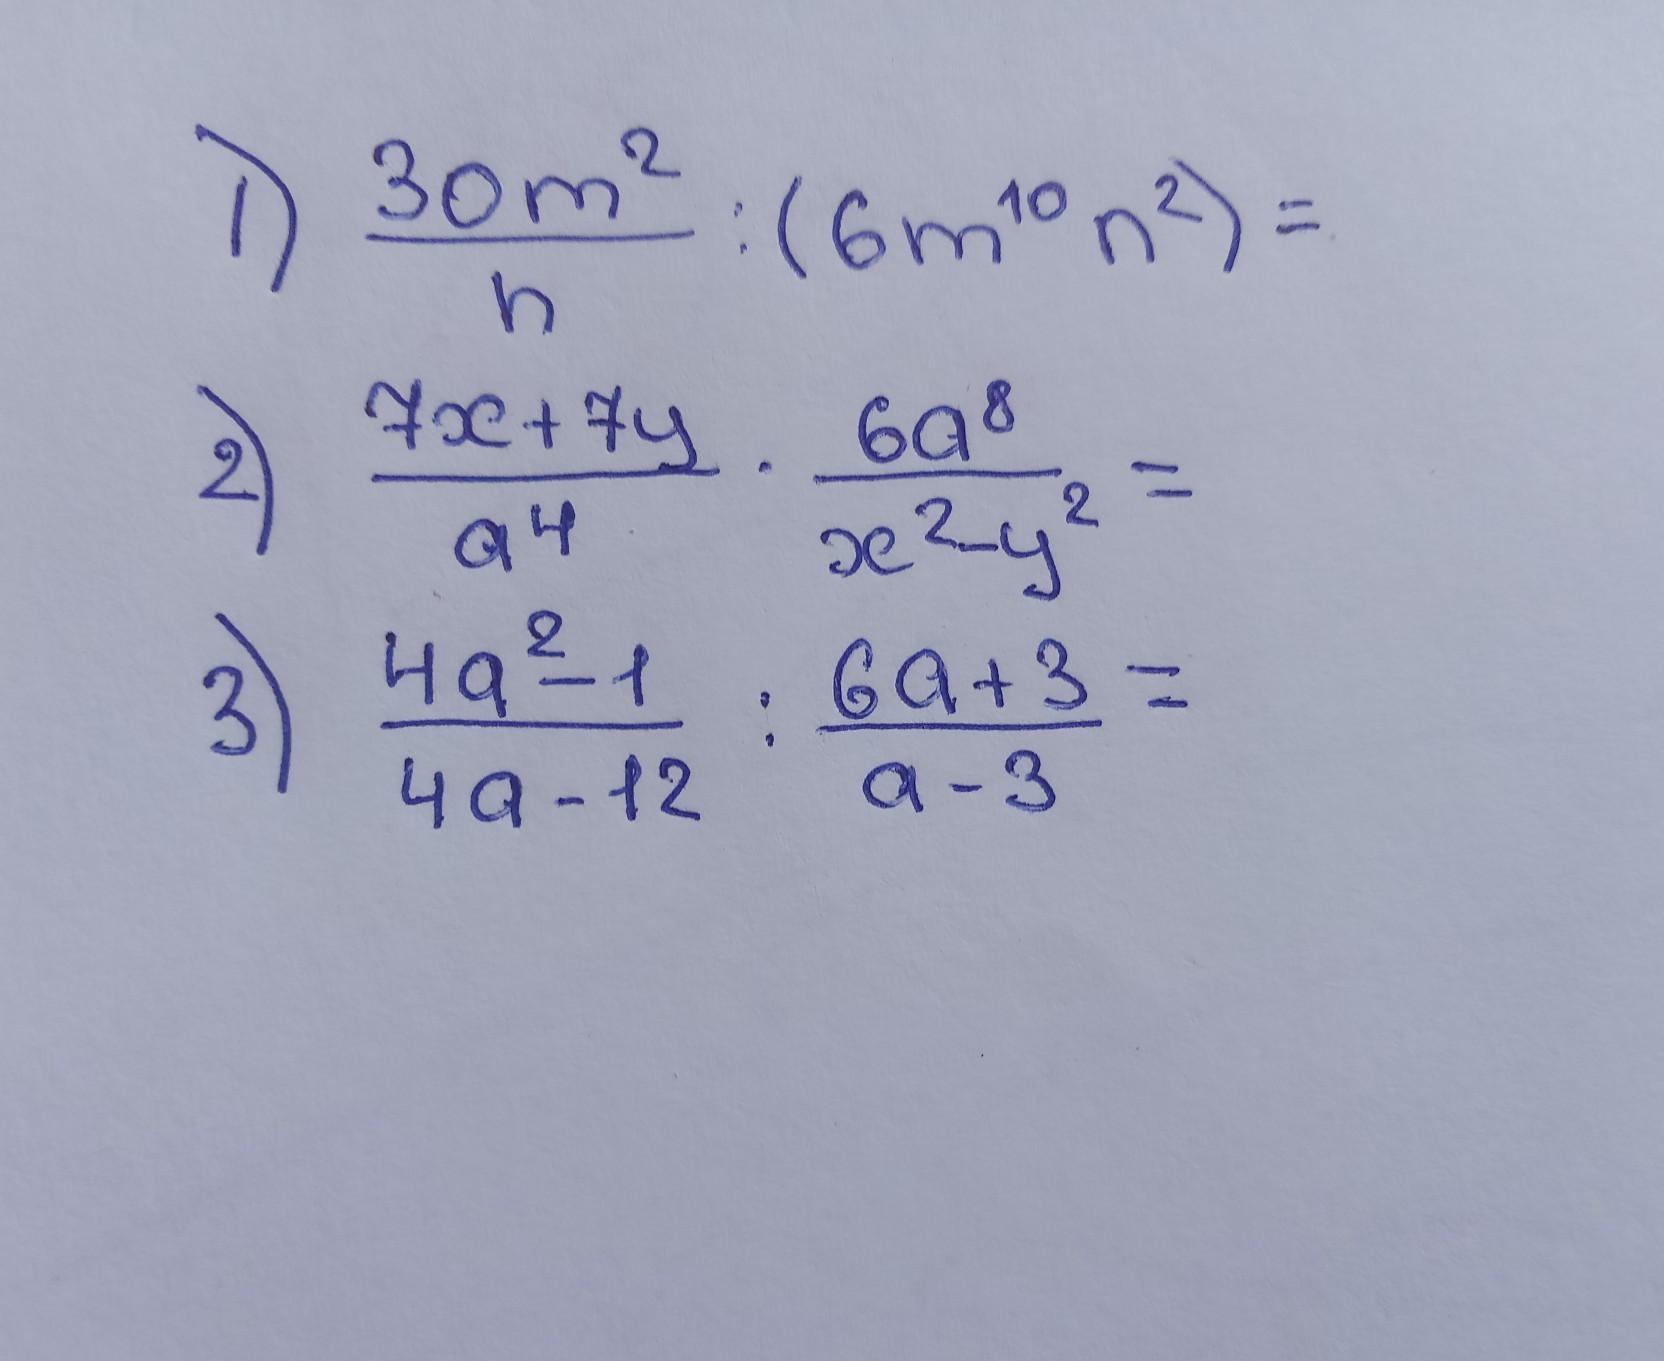 1) 30m²/n : (6m¹⁰n²) =
2) 7x+7y/a⁴ · 6a⁸/x²-y² =
3) 4a²-1/4a-12 : 6a+3/a-3 =